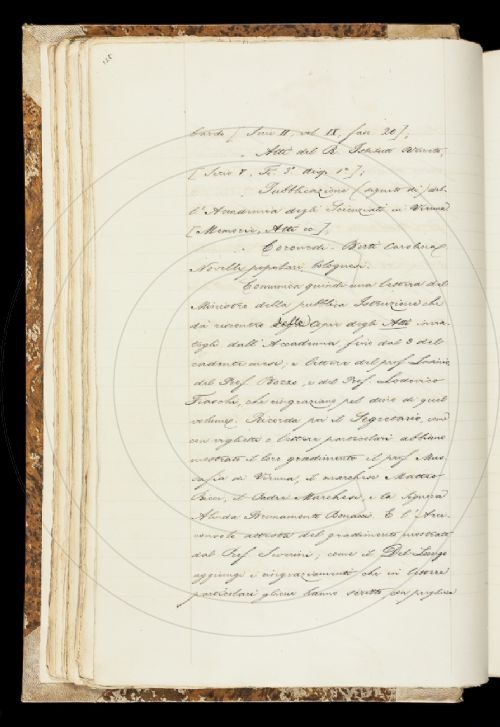 bardo [Serie II, vol IX, fasc 20];
Atti del R. Istituto Veneto,
[Serie V, T. 3° disp. 1ª];
Pubblicazione (agosto di) del-
l'Accademia degli in Vienna
[Memorie, Atti ec];
Coronedi-Berti Carolina
Novelle popolari bolognesi.
Comunica quindi una lettera del
Ministro della pubblica Istruzione che
dà riscontro delle copie degli Atti invia-
tegli dall'Accademia fino dal 3 del
cadente mese, e lettere del prof.
del Prof. Bozzo, e del Prof. Lodovico
che ringraziano pel dono di quel
volume. Ricorda poi il Segretario, come
con viglietti e lettere particolari abbiano
mostrato il loro gradimento il prof. Mus-
safia di Vienna, il marchese Matteo
Ricci, il Padre Marchese, e la Signora
Alinda Brunamonte Bonacci. E l'Arci-
consolo attesta del gradimento mostrato
dal Prof Severini; come il Del-Lungo
aggiunge i ringraziamenti che in lettere
particolari gliene hanno scritto, con preghiera